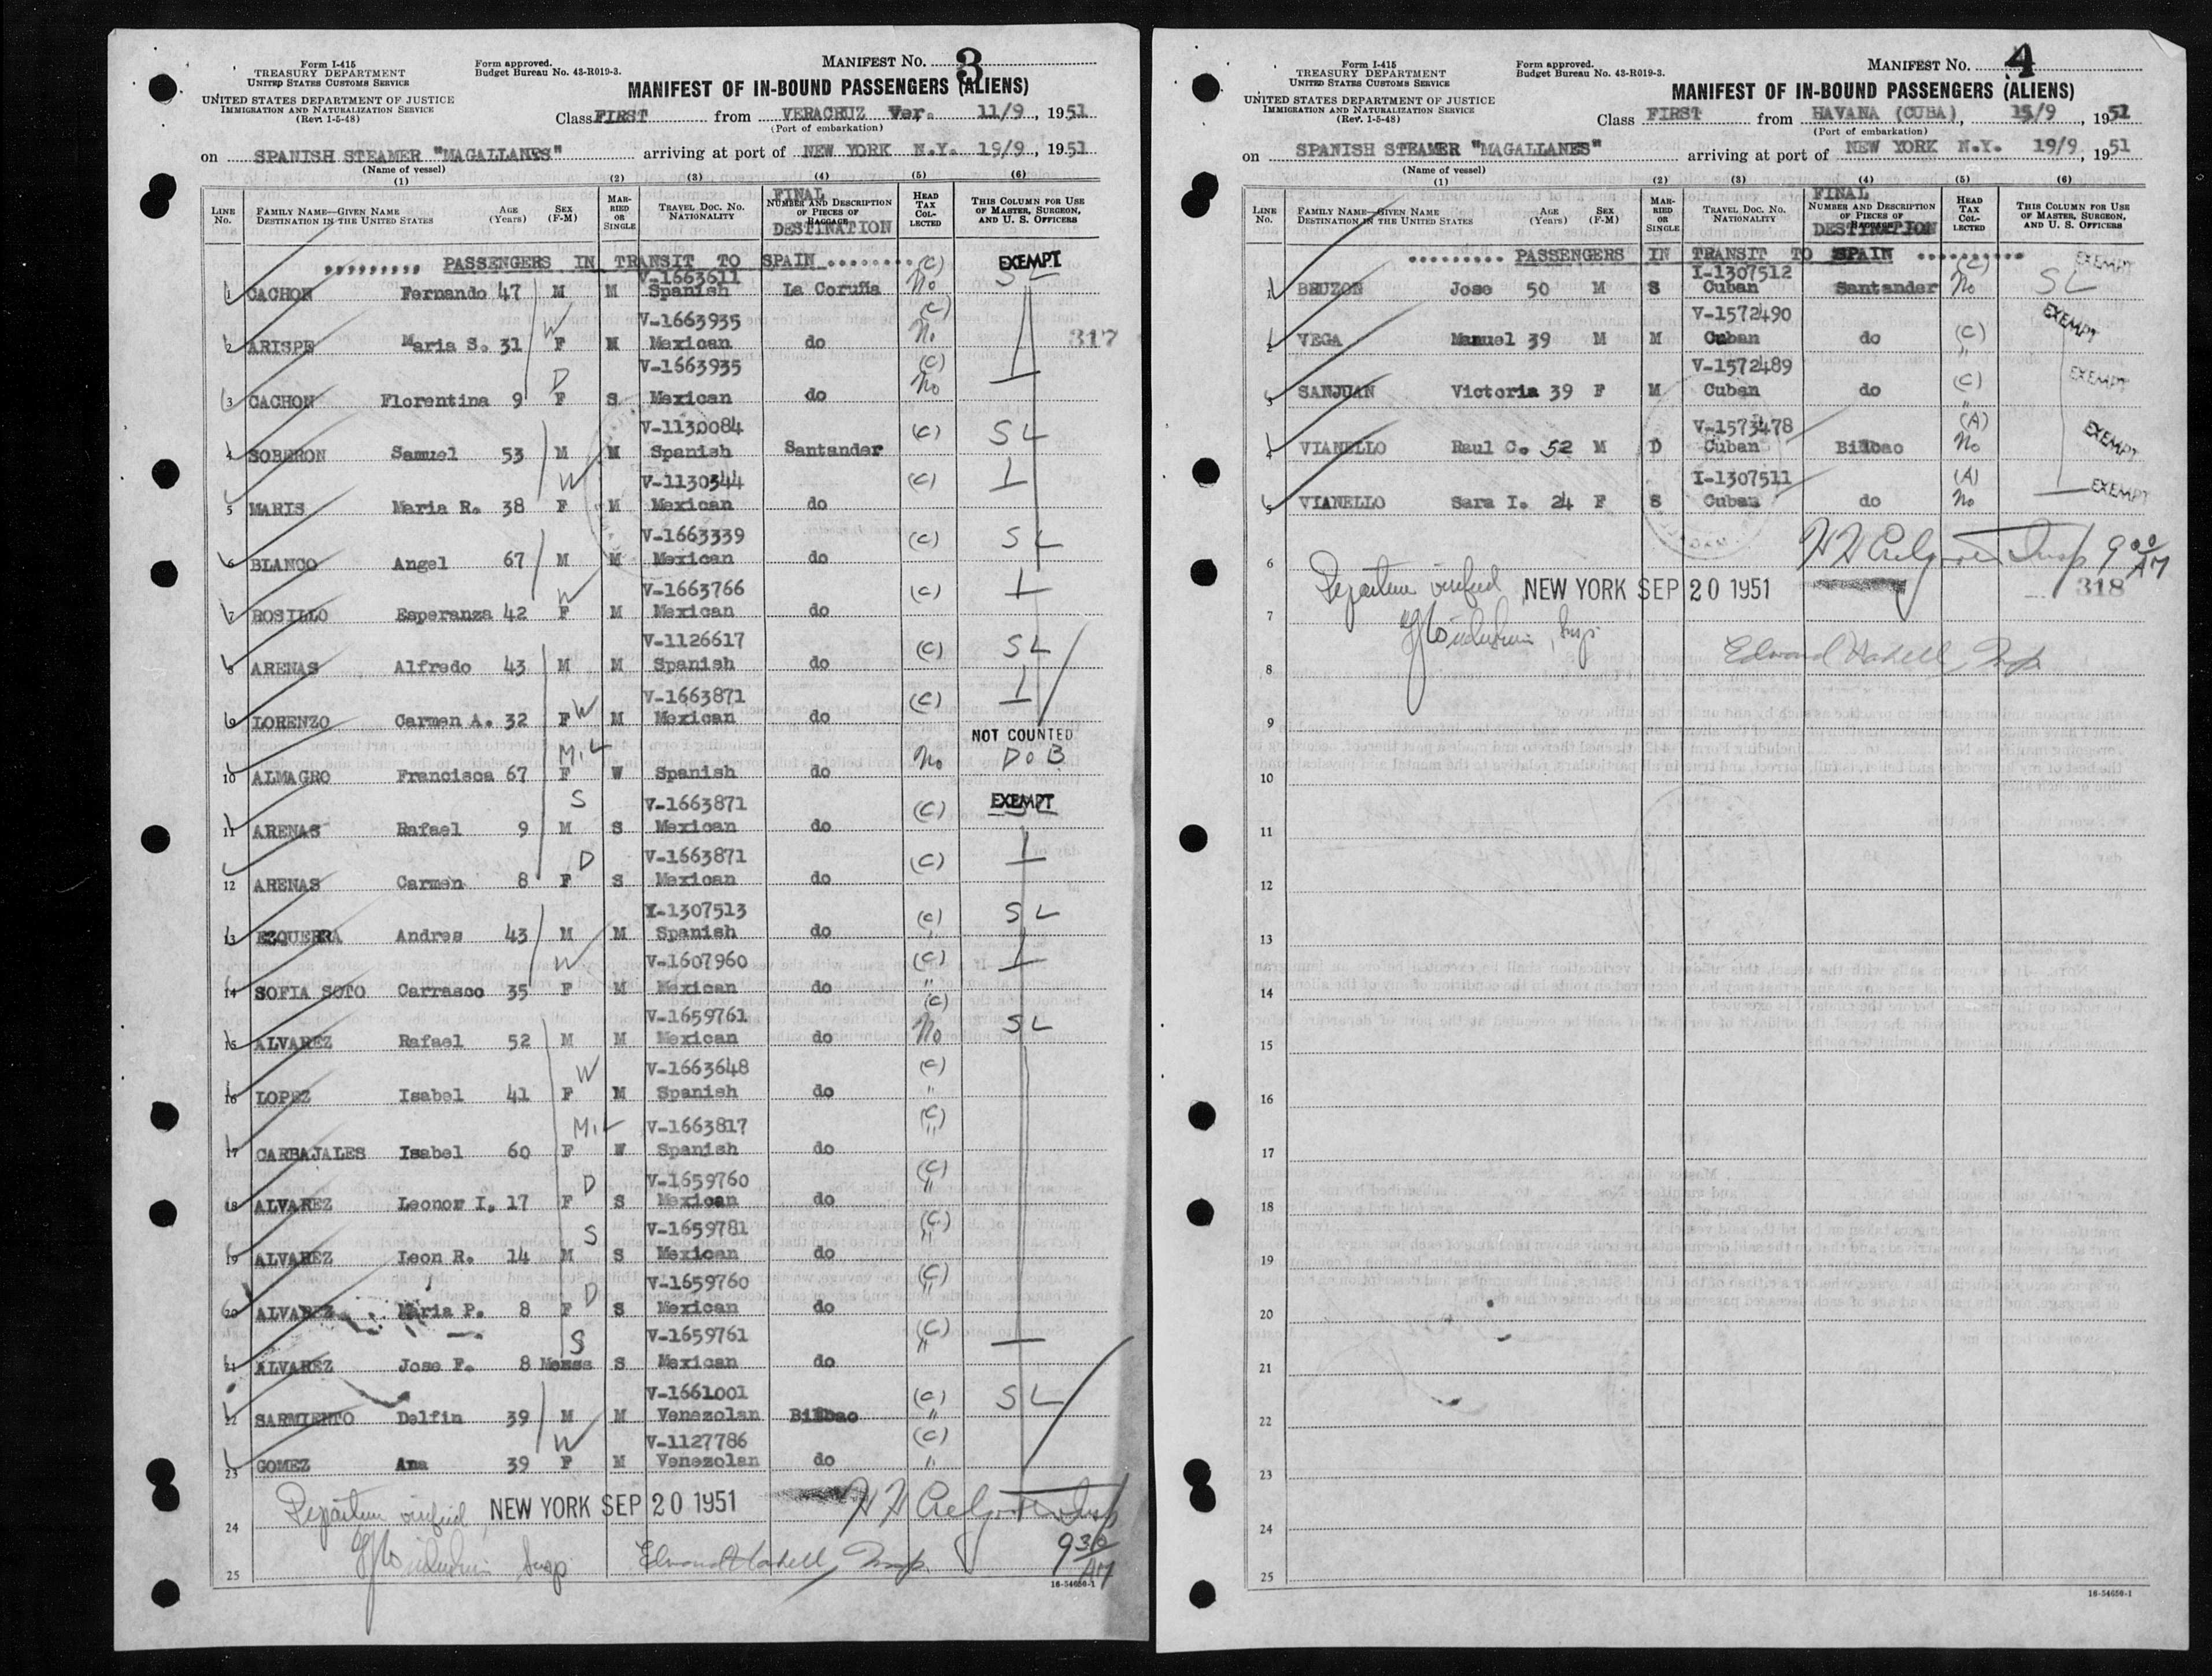 Form I-415
TREASURY DEPARTMENT
UNITED STATES CUSTOMS SERVICE
UNITED STATES DEPARTMENT OF JUSTICE
IMMIGRATION AND NATURALIZATION SERVICE
(Rev. 1-5-48)
Form approved.
Budget Bureau No. 43-R019-3.
MANIFEST No. 3
MANIFEST OF IN-BOUND PASSENGERS (ALIENS)
Class FIRST from VERACRUZ Ver. 11/9, 1951
(Port of embarkation)
on SPANISH STEAMER "MAGALLANES" arriving at port of NEW YORK N.Y. 19/9, 1951
(Name of vessel)
(1) (2) (3) (4) (5) (6)
LINE No. FAMILY NAME—GIVEN NAME DESTINATION IN THE UNITED STATES AGE (Years) SEX (F-M) MARRIED OR SINGLE TRAVEL DOC. No. NATIONALITY FINAL NUMBER AND DESCRIPTION OF PIECES OF BAGGAGE DESTINATION HEAD TAX COLLECTED THIS COLUMN FOR USE OF MASTER, SURGEON, AND U. S. OFFICERS
......... PASSENGERS IN TRANSIT TO SPAIN ........ (C) EXEMPT
V-1663611 SL
1 CACHON Fernando 47 M M Spanish La Coruña No
W V-1663935 (C)
2 ARISPE Maria S. 31 F M Mexican do No 317
D V-1663935 (C)
3 CACHON Florentina 9 F S Mexican do No
V-1130084 (C) SL
4 SOBERON Samuel 53 M M Spanish Santander
W V-1130344 (C)
5 MARIS Maria R. 38 F M Mexican do
V-1663339 (C) SL
6 BLANCO Angel 67 M M Mexican do
W V-1663766 (C)
7 ROSILLO Esperanza 42 F M Mexican do
V-1126617 (C) SL
8 ARENAS Alfredo 43 M M Spanish do
W V-1663871 (C)
9 LORENZO Carmen A. 32 F M Mexican do
M.L NOT COUNTED
10 ALMAGRO Francisca 67 F W Spanish do No DOB
S V-1663871 (C) EXEMPT SL
11 ARENAS Rafael 9 M S Mexican do
D V-1663871 (C)
12 ARENAS Carmen 8 F S Mexican do
I-1307513 (C) SL
13 EZQUERRA Andres 43 M M Spanish do "
W V-1607960 (C)
14 SOFIA SOTO Carrasco 35 F M Mexican do "
V-1659761 (C) SL
15 ALVAREZ Rafael 52 M M Mexican do No
W V-1663648 (C)
16 LOPEZ Isabel 41 F M Spanish do "
M.L V-1663817 (C)
17 CARBAJALES Isabel 60 F W Spanish do "
D V-1659760 (C)
18 ALVAREZ Leonor I. 17 F S Mexican do "
S V-1659781 (C)
19 ALVAREZ Leon R. 14 M S Mexican do "
D V-1659760 (C)
20 ALVAREZ Maria P. 8 F S Mexican do "
S V-1659761 (C)
21 ALVAREZ Jose F. 8 M S Mexican do "
V-1661001 (C) SL
22 SARMIENTO Delfin 39 M M Venezolan Bilbao "
W V-1127786 (C)
23 GOMEZ Ana 39 F M Venezolan do "
Departure verified NEW YORK SEP 20 1951
24
Insp 9 30 AM
25 Insp. Edward Insp.
16-54650-1
Form I-415
TREASURY DEPARTMENT
UNITED STATES CUSTOMS SERVICE
UNITED STATES DEPARTMENT OF JUSTICE
IMMIGRATION AND NATURALIZATION SERVICE
(Rev. 1-5-48)
Form approved.
Budget Bureau No. 43-R019-3.
MANIFEST No. 4
MANIFEST OF IN-BOUND PASSENGERS (ALIENS)
Class FIRST from HAVANA (CUBA), 15/9, 1951
(Port of embarkation)
on SPANISH STEAMER "MAGALLANES" arriving at port of NEW YORK N.Y. 19/9, 1951
(Name of vessel)
(1) (2) (3) (4) (5) (6)
LINE No. FAMILY NAME—GIVEN NAME DESTINATION IN THE UNITED STATES AGE (Years) SEX (F-M) MARRIED OR SINGLE TRAVEL DOC. No. NATIONALITY FINAL NUMBER AND DESCRIPTION OF PIECES OF BAGGAGE DESTINATION HEAD TAX COLLECTED THIS COLUMN FOR USE OF MASTER, SURGEON, AND U. S. OFFICERS
......... PASSENGERS IN TRANSIT TO SPAIN .......... EXEMPT
I-1307512 (C)
1 BRUZON Jose 50 M S Cuban Santander No SL
V-1572490 EXEMPT
2 VEGA Manuel 39 M M Cuban do (C) "
V-1572489 EXEMPT
3 SANJUAN Victoria 39 F M Cuban do (C) "
V-1573478 (A) EXEMPT
4 VIANELLO Raul C. 52 M D Cuban Bilbao No
I-1307511 (A) EXEMPT
5 VIANELLO Sara I. 24 F S Cuban do No
Insp 9 00 AM
6
Departure verified NEW YORK SEP 20 1951 318
7
Insp.
Edward Insp.
8
9
10
11
12
13
14
15
16
17
18
19
20
21
22
23
24
25
16-54650-1